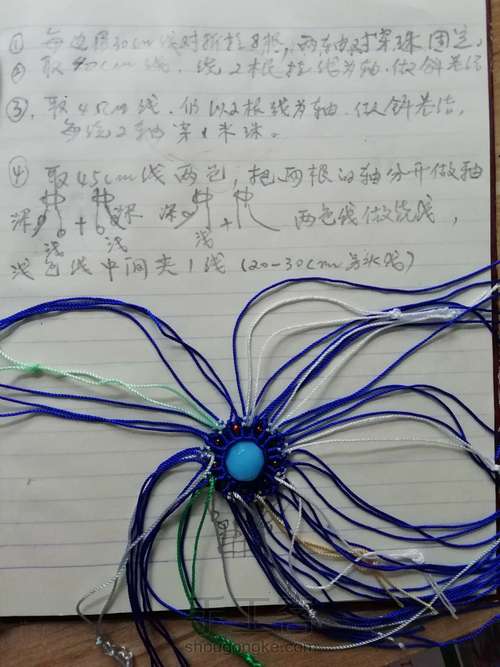 ① 每边用30cm线对折挂8根,两轴对穿珠固定。
② 取40cm线,绕2根挂线为轴.做斜卷结
③.取45cm线.仍以2根线为轴.做斜卷结,
每绕2轴穿1米珠。
④ 取45cm线两色,把两根的轴分开做轴
深 + 深 深 + 两色线做绕线,
浅 浅 浅
浅色线中间夹1线(20-30cm)
shougongke.com